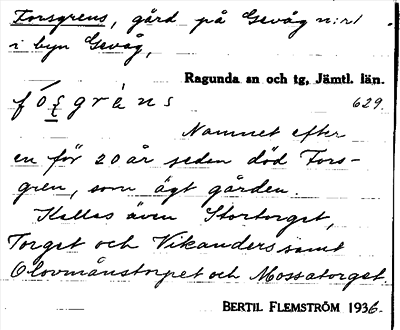 Forsgrens, gård på Gevåg n:r 1
i byn Gevåg,
Ragunda sn och tg, Jämtl. län.
629.
Namnet efter
en för 20 år sedan död Fors-
gren, som ägt gården.
Kallas även Stortorget,
Torget och Vikanders samt
Olovmånstorpet och Mossatorget
BERTIL FLEMSTRÖM 1936.